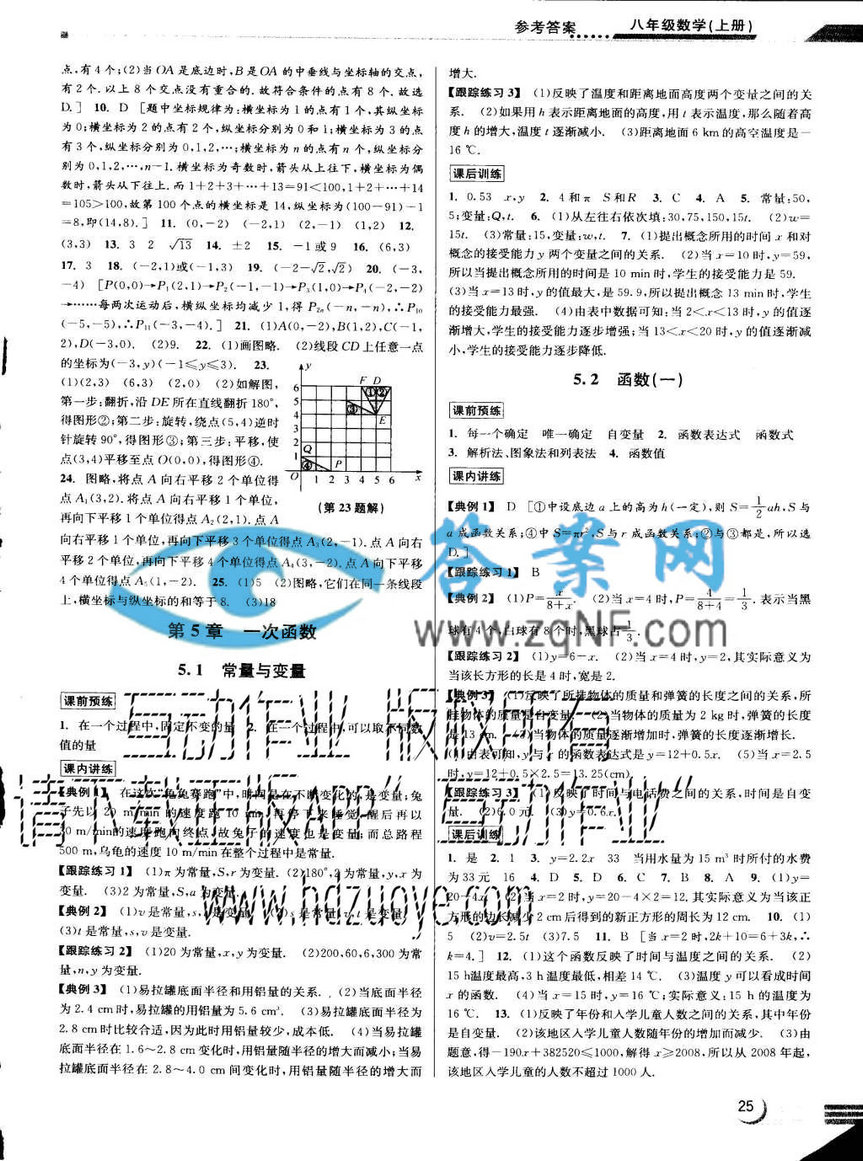 参考答案
八年级数学(上册)
点,有4个;(2)当OA是底边时,B是OA的中垂线与坐标轴的交点,
有2个.以上8个交点没有重合的.故符合条件的点有8个.故选
D.] 10. D [题中坐标规律为:横坐标为1的点有1个,其纵坐标
为0;横坐标为2的点有2个,纵坐标分别为0和1;横坐标为3的点
有3个,纵坐标分别为0,1,2,…;横坐标为n的点有n个,纵坐标分
别为0,1,2,…,n-1.横坐标为奇数时,箭头从上往下,横坐标为偶
数时,箭头从下往上.而1+2+3+…+13=91<100,1+2+…+14
=105>100,故第100个点的横坐标是14,纵坐标为(100-91)-1
=8,即(14,8).] 11. (0,-2) (-2,1) (2,-1) (1,2) 12.
(3,3) 13. 3 2 √13 14. ±2 15. -1或9 16. (6,3)
17. 3 18. (-2,1)或(-1,3) 19. (-2-√2,√2) 20. (-3,
-4) [P(0,0)→P₁(2,1)→P₂(-1,-1)→P₃(1,0)→P₄(-2,-2)
→……每两次运动后,横纵坐标均减少1,得P₂ₙ(-n,-n),∴P₁₀
(-5,-5),∴P₁₁(-3,-4).] 21. (1)A(0,-2),B(1,2),C(-1,
2),D(-3,0). (2)9. 22. (1)画图略. (2)线段CD上任意一点
的坐标为(-3,y)(-1≤y≤3). 23.
(1)(2,3) (6,3) (2,0) (2)如解图,
第一步:翻折,沿DE所在直线翻折180°,
得图形②;第二步:旋转,绕点(5,4)逆时
针旋转90°,得图形③;第三步:平移,使
点(3,4)平移至点O(0,0),得图形④.
y
F D
6
5
4
3
2
1
① ②
③
E
Q
④
P
O 1 2 3 4 5 6 x
(第23题解)
24. 图略,将点A向右平移2个单位得
点A₁(3,2).将点A向右平移1个单位,
再向下平移1个单位得点A₂(2,1).点A
向右平移1个单位,再向下平移3个单位得点A₃(2,-1).点A向右
平移2个单位,再向下平移4个单位得点A₄(3,-2).点A向下平移
4个单位得点A₅(1,-2). 25. (1)5 (2)图略,它们在同一条线段
上,横坐标与纵坐标的和等于8. (3)18
第5章 一次函数
5.1 常量与变量
课前预练
1. 在一个过程中,固定不变的量 2. 在一个过程中,可以取不同数
值的量
课内讲练
【典例1】 在这次“龟兔赛跑”中,时间是在不断变化的,是变量;兔
子先以20 m/min的速度跑10 min,再停下来睡觉,醒后再以
30 m/min的速度跑向终点,故兔子的速度也是变量;而总路程
500 m,乌龟的速度10 m/min在整个过程中是常量.
【跟踪练习1】 (1)π为常量,S,r为变量. (2)180°,2为常量,y,x为
变量. (3)2为常量,S,a为变量.
【典例2】 (1)v是常量,s,t是变量. (2)s是常量,v,t是变量.
(3)t是常量,s,v是变量.
【跟踪练习2】 (1)20为常量,x,y为变量. (2)200,60,6,300为常
量,n,y为变量.
【典例3】 (1)易拉罐底面半径和用铝量的关系. (2)当底面半径
为2.4 cm时,易拉罐的用铝量为5.6 cm³. (3)易拉罐底面半径为
2.8 cm时比较合适,因为此时用铝量较少,成本低. (4)当易拉罐
底面半径在1.6~2.8 cm变化时,用铝量随半径的增大而减小;当易
拉罐底面半径在2.8~4.0 cm间变化时,用铝量随半径的增大而
增大.
【跟踪练习3】 (1)反映了温度和距离地面高度两个变量之间的关
系. (2)如果用h表示距离地面的高度,用t表示温度,那么随着高
度h的增大,温度t逐渐减小. (3)距离地面6 km的高空温度是-
16 ℃.
课后训练
1. 0.53 x,y 2. 4和π S和R 3. C 4. A 5. 常量:50,
5;变量:Q,t. 6. (1)从左往右依次填:30,75,150,15t. (2)w=
15t. (3)常量:15,变量:w,t. 7. (1)提出概念所用的时间x和对
概念的接受能力y两个变量之间的关系. (2)当x=10时,y=59,
所以当提出概念所用的时间是10 min时,学生的接受能力是59.
(3)当x=13时,y的值最大,是59.9,所以提出概念13 min时,学生
的接受能力最强. (4)由表中数据可知:当2<x<13时,y的值逐
渐增大,学生的接受能力逐步增强;当13<x<20时,y的值逐渐减
小,学生的接受能力逐步降低.
5.2 函数(一)
课前预练
1. 每一个确定 唯一确定 自变量 2. 函数表达式 函数式
3. 解析法、图象法和列表法 4. 函数值
课内讲练
【典例1】 D [①中设底边a上的高为h(一定),则S=1/2ah,S与
a成函数关系;④中S=πr²,S与r成函数关系;②与③都是,所以选
D.]
【跟踪练习1】 B
【典例2】 (1)P=x/(8+x). (2)当x=4时,P=4/(8+4)=1/3.表示当黑
球有4个,白球有8个时,黑球占1/3.
【跟踪练习2】 (1)y=6-x. (2)当x=4时,y=2,其实际意义为
当该长方形的长是4时,宽是2.
【典例3】 (1)反映了所挂物体的质量和弹簧的长度之间的关系,所
挂物体的质量是自变量. (2)当物体的质量为2 kg时,弹簧的长度
是13 cm. (3)当物体的质量逐渐增加时,弹簧的长度逐渐增长.
(4)由表可知,y与x的函数表达式是y=12+0.5x. (5)当x=2.5
时,y=12+0.5×2.5=13.25(cm).
【跟踪练习3】 (1)反映了时间与电话费之间的关系,时间是自变
量. (2)6.0元. (3)y=0.6x.
课后训练
1. 是 2. 1 3. y=2.2x 33 当用水量为15 m³时所付的水费
为33元 16 4. D 5. D 6. C 7. B 8. A 9. (1)y=
20-4x. (2)当x=2时,y=20-4×2=12.其实际意义为当该正
方形的边长减少2 cm后得到的新正方形的周长为12 cm. 10. (1)
5 (2)v=2.5t (3)7.5 11. B [当x=2时,2k+10=6+3k,∴
k=4.] 12. (1)这个函数反映了时间与温度之间的关系. (2)
15 h温度最高,3 h温度最低,相差14 ℃. (3)温度y可以看成时间
x的函数. (4)当x=15时,y=16 ℃;实际意义:15 h的温度为
16 ℃. 13. (1)反映了年份和入学儿童人数之间的关系,其中年份
是自变量. (2)该地区入学儿童人数随年份的增加而减少. (3)由
题意,得-190x+382520≤1000,解得x≥2008,所以从2008年起,
该地区入学儿童的人数不超过1000人.
25
答案网
www.zqNF.com
互动作业 版权所有
请下载正版App“互动作业”
www.hdzuoye.com